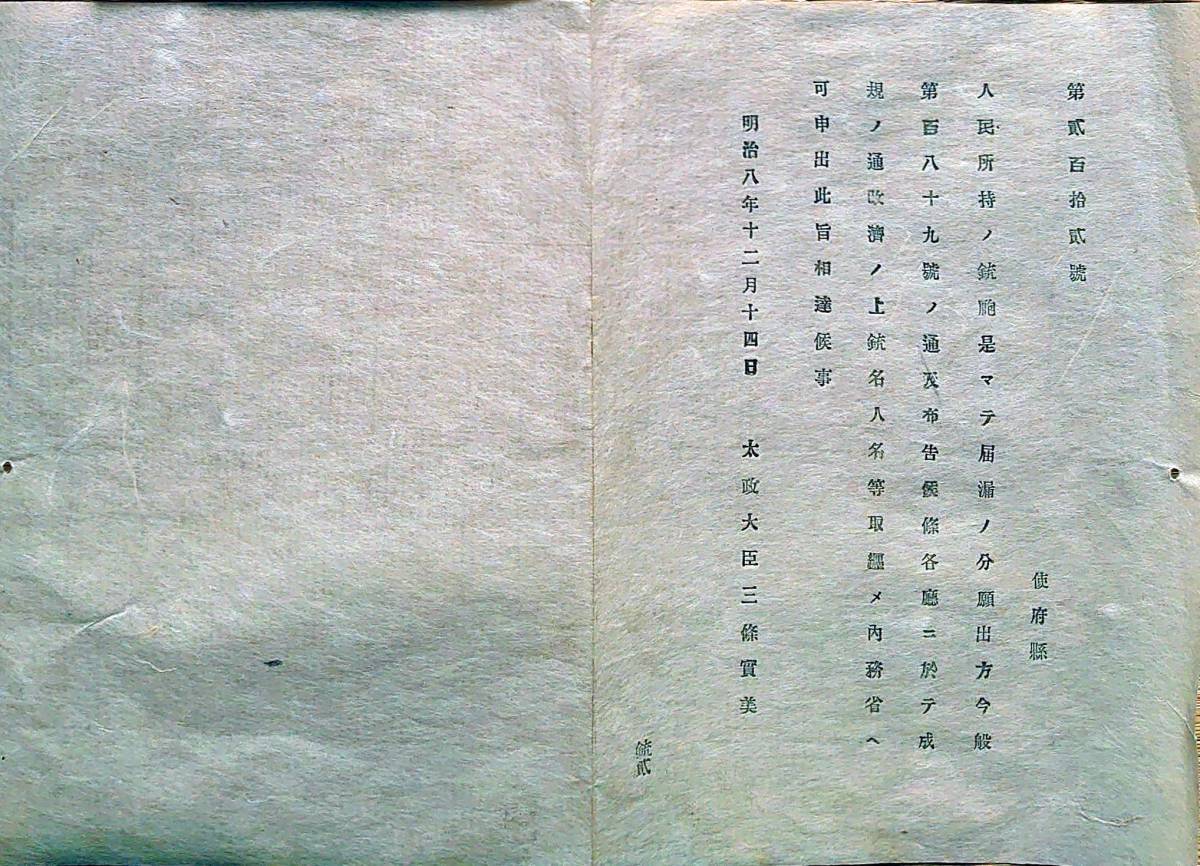 第貳百拾貳號
使府縣
人民所持ノ銃砲是マテ届漏ノ分願出方今般
第百八十九號ノ通及布告候條各廳ニ於テ成
規ノ通改濟ノ上銃名人名等取纒メ內務省ヘ
可申出此旨相達候事
明治八年十二月十四日 太政大臣三條實美
貳